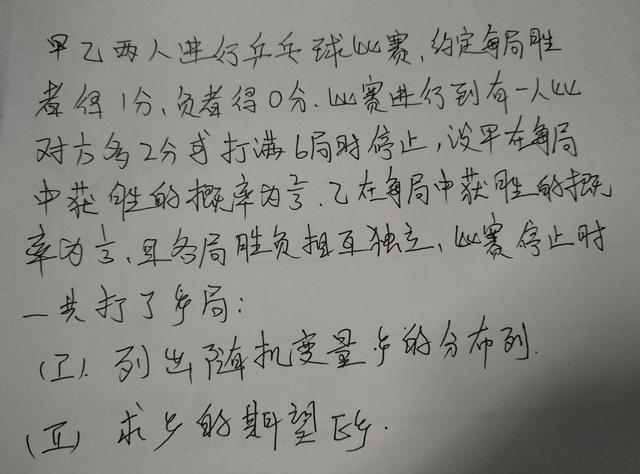 甲乙两人进行乒乓球比赛,约定每局胜
者得1分,负者得0分.比赛进行到有一人比
对方多2分或打满6局时停止,设甲在每局
中获胜的概率为2/3.乙在每局中获胜的概
率为1/3,且各局胜负相互独立,比赛停止时
一共打了ξ局:
(I).列出随机变量ξ的分布列.
(II)求ξ的期望Eξ.